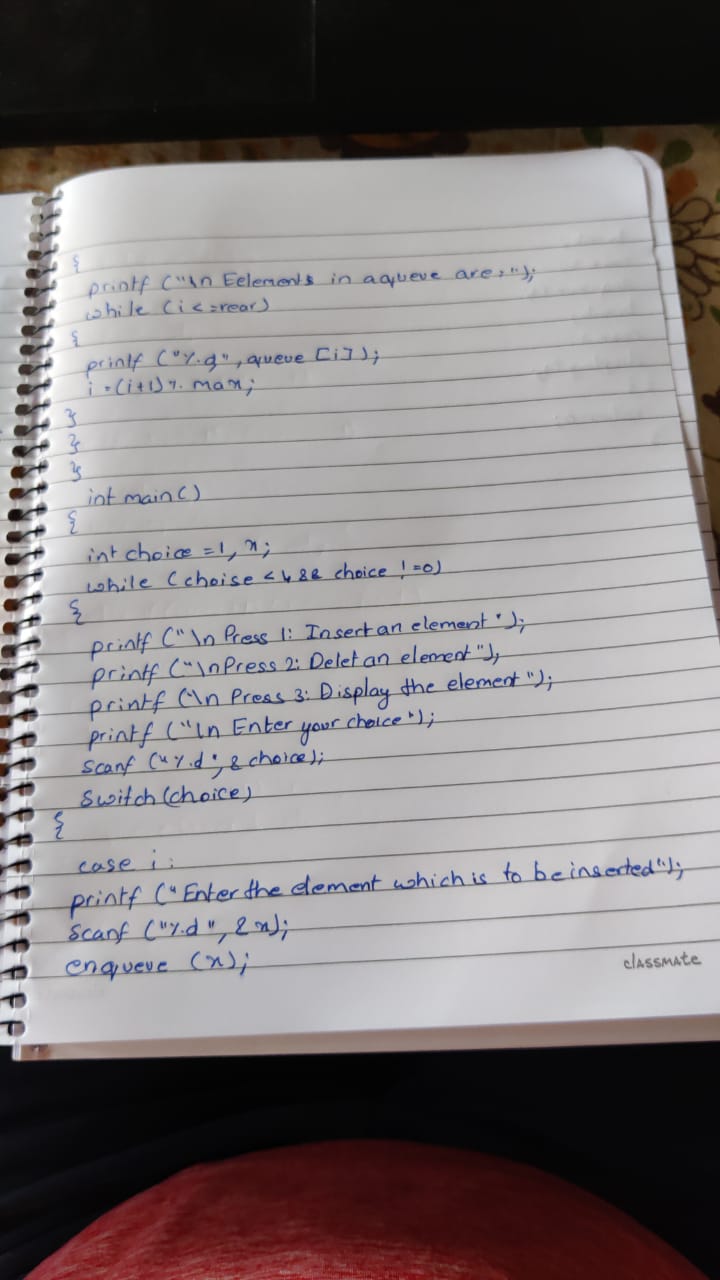 {
printf ("\n Eelements in a queue are:");
while (i<=rear)
{
printf ("%.g", queue [i]);
i =(i+1)%. max;
}
}
}
int main()
{
int choice =1, x;
while (choise <4 && choice !=0)
{
printf ("\n Press 1: Insert an element");
printf ("\n Press 2: Delet an element");
printf ("\n Press 3: Display the element");
printf ("\n Enter your choice");
scanf ("%.d", &choice);
Switch (choice)
{
case i:
printf ("Enter the element which is to be inserted");
scanf ("%.d", &x);
enqueue (x);
classmate